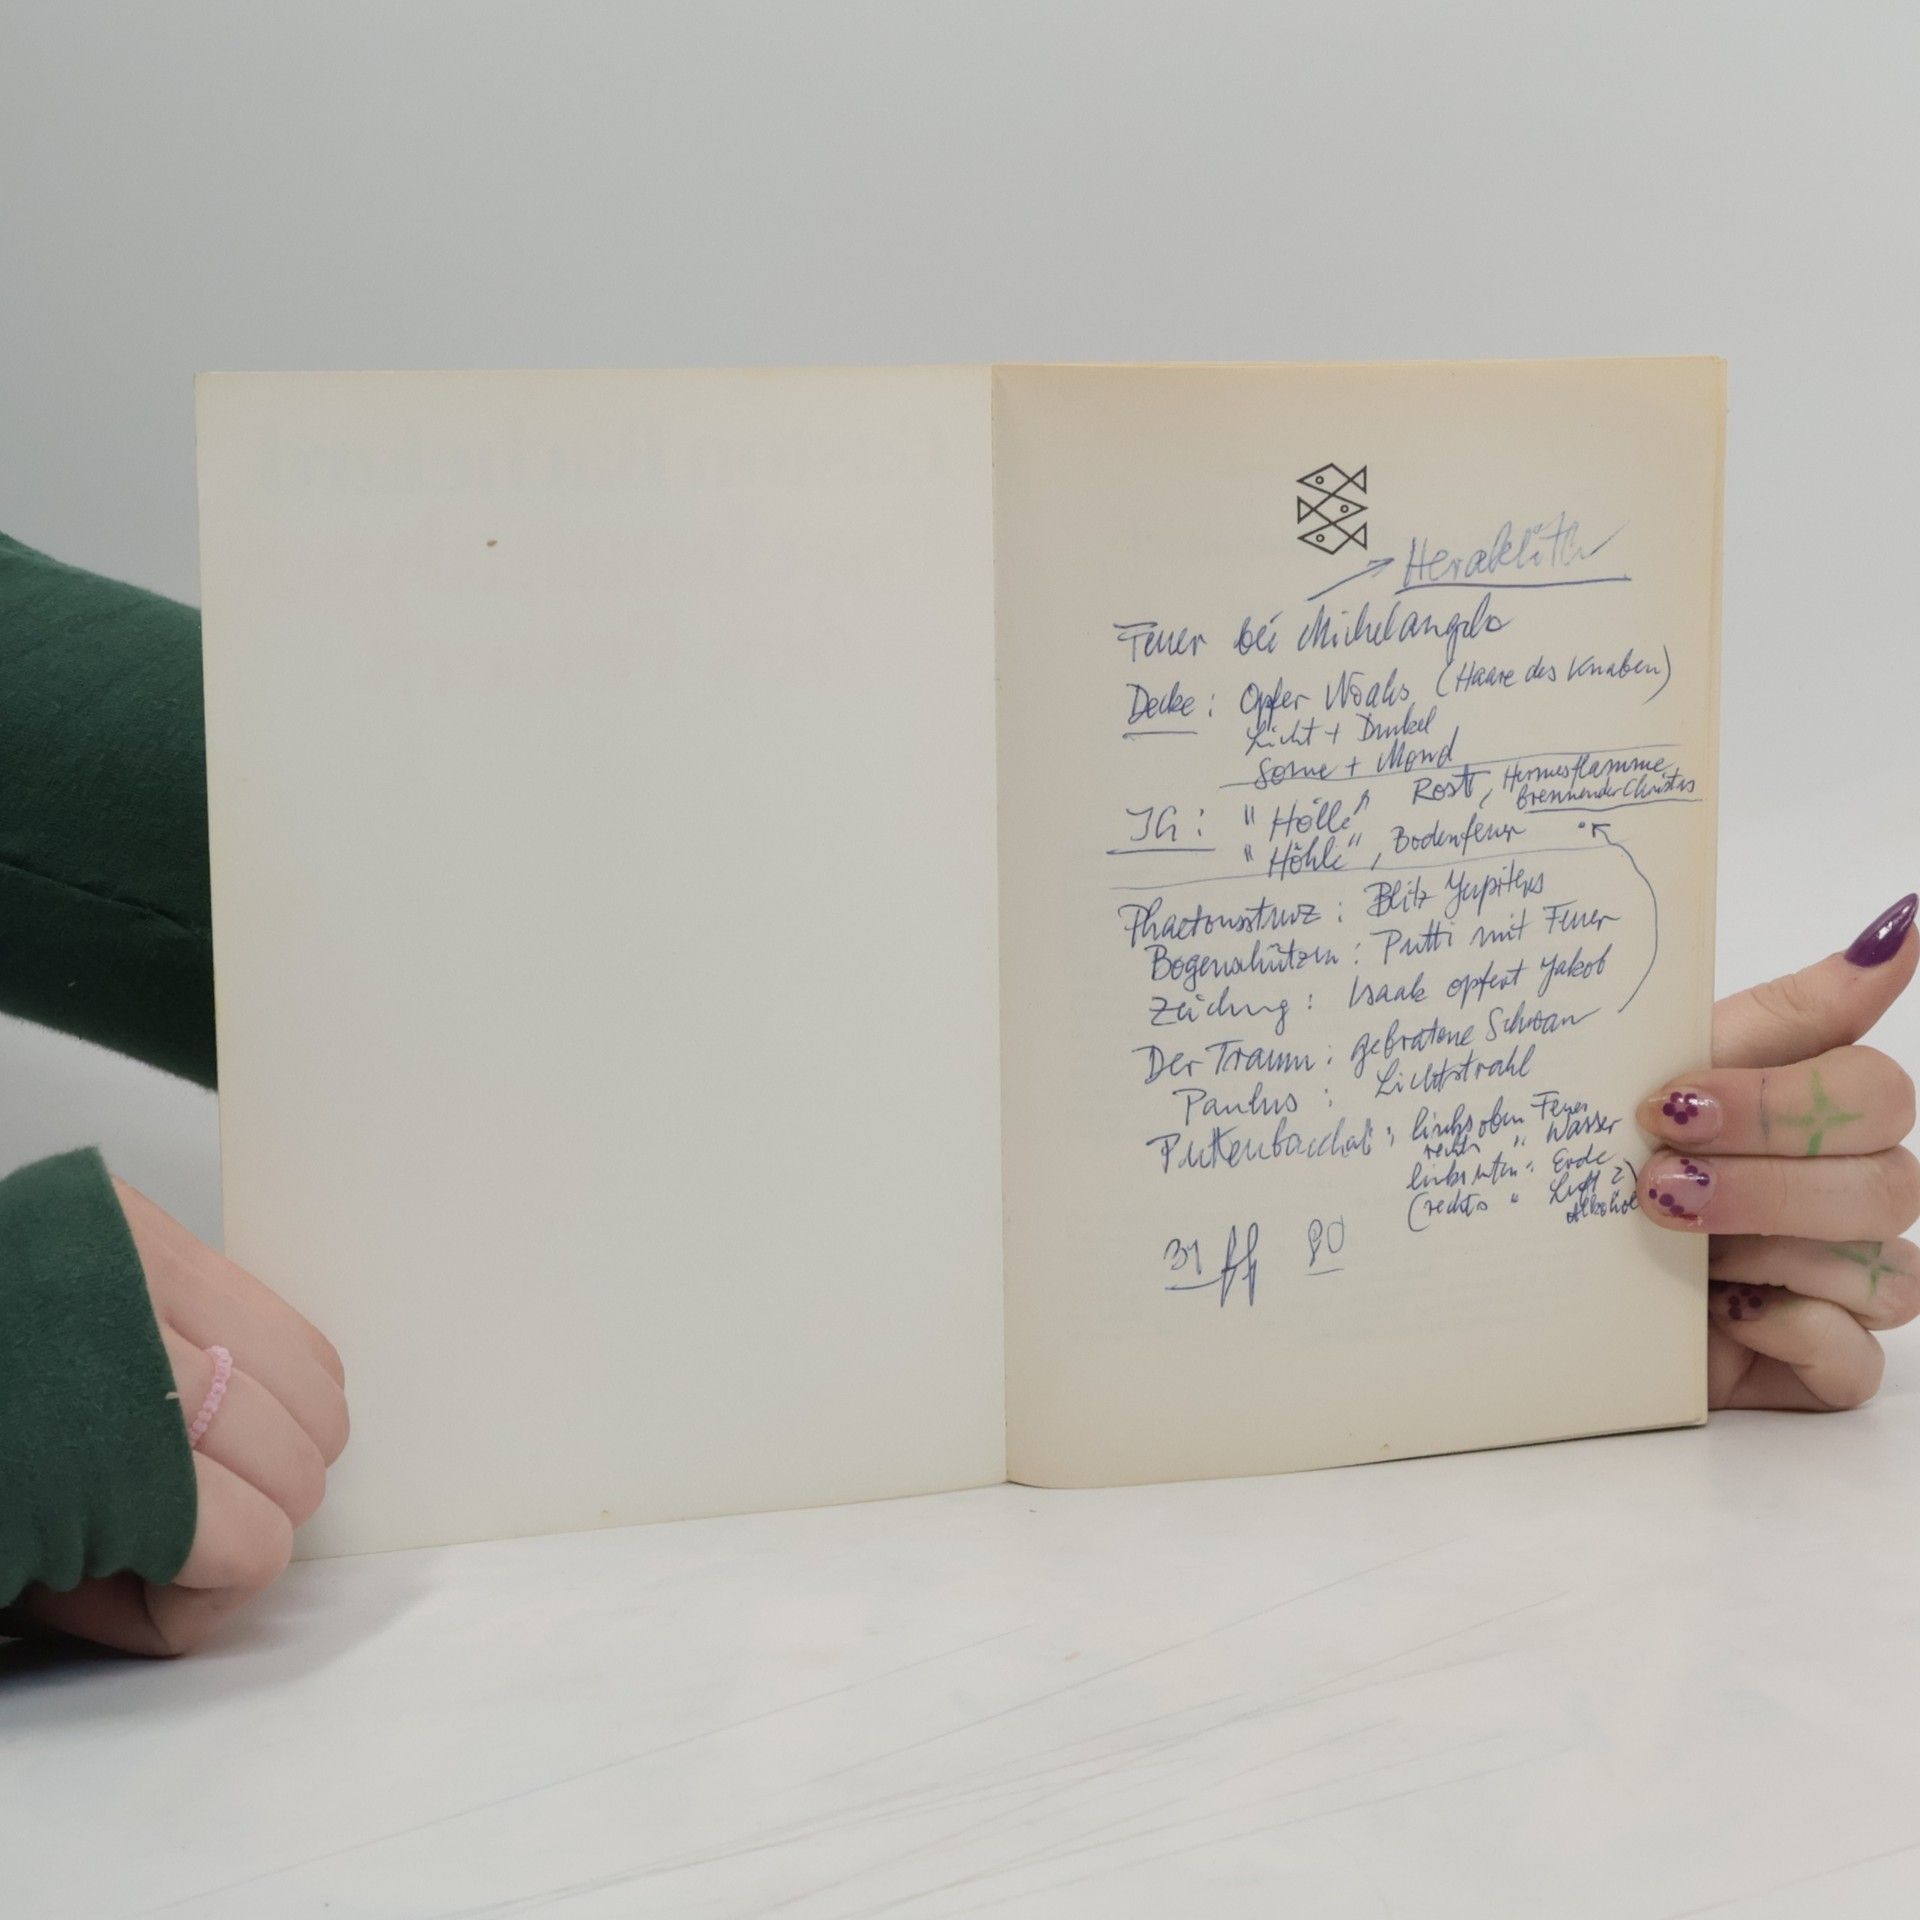 Heraklith
Feuer bei Michelangelo
Decke: Opfer Noahs (Haare des Knaben)
Licht + Dunkel
Sonne + Mond
JG: "Hölle" Rost, Hermesflamme
brennender Christus
"Höhle", Bodenfeuer
Phaetonssturz: Blitz Jupiters
Bogenschützen: Putti mit Feuer
Zeichnung: Isaak opfert Jakob
Der Traum: gebratene Schwan
Paulus: Lichtstrahl
Puttenbacchal: links oben Feuer
rechts " Wasser
links unten: Erde
(rechts " Luft?)
Alkohol
31 ff 80